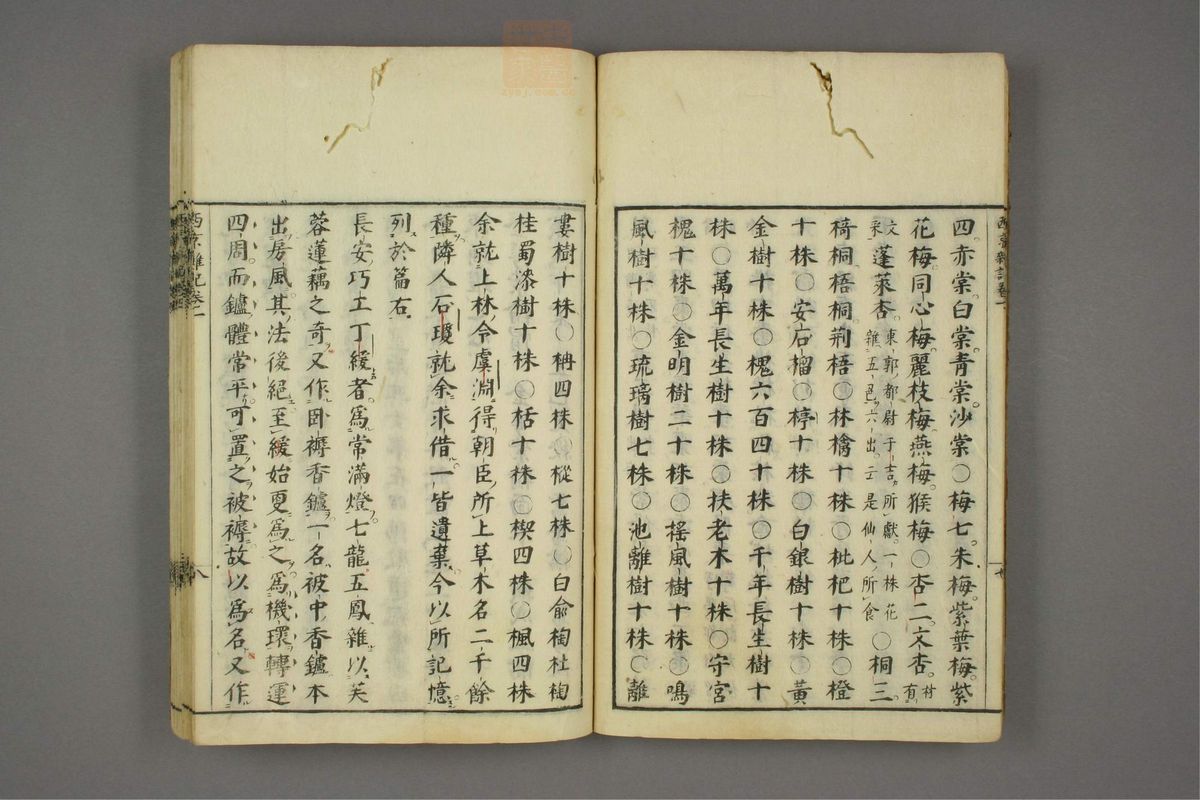 四赤棠白棠青棠沙棠○梅七朱梅紫葉梅紫
花梅同心梅麗枝梅燕梅猴梅○杏二文杏材有
文采蓬萊杏東郭都尉于吉所獻一株花雜五色六出云是仙人所食○桐三
椅桐梧桐荊梧○林檎十株○枇杷十株○橙
十株○安石榴○楟十株○白銀樹十株○黃
金樹十株○槐六百四十株○千年長生樹十
株○萬年長生樹十株○扶老木十株○守宮
槐十株○金明樹二十株○搖風樹十株○鳴
風樹十株○琉璃樹七株○池離樹十株○離
婁樹十株○枏四株○樅七株○白俞梅杜梅
桂蜀漆樹十株○栝十株○楔四株○楓四株
余就上林令虞淵得朝臣所上草木名二千餘
種隣人石瓊就余求借一皆遺棄今以所記憶
列於篇右
長安巧工丁緩者為常滿燈七龍五鳳雜以芙
蓉蓮藕之奇又作臥褥香鑪一名被中香鑪本
出房風其法後絕至緩始更為之為機環轉運
四周而鑪體常平可置之被褥故以為名又作
西京雜記卷二
八